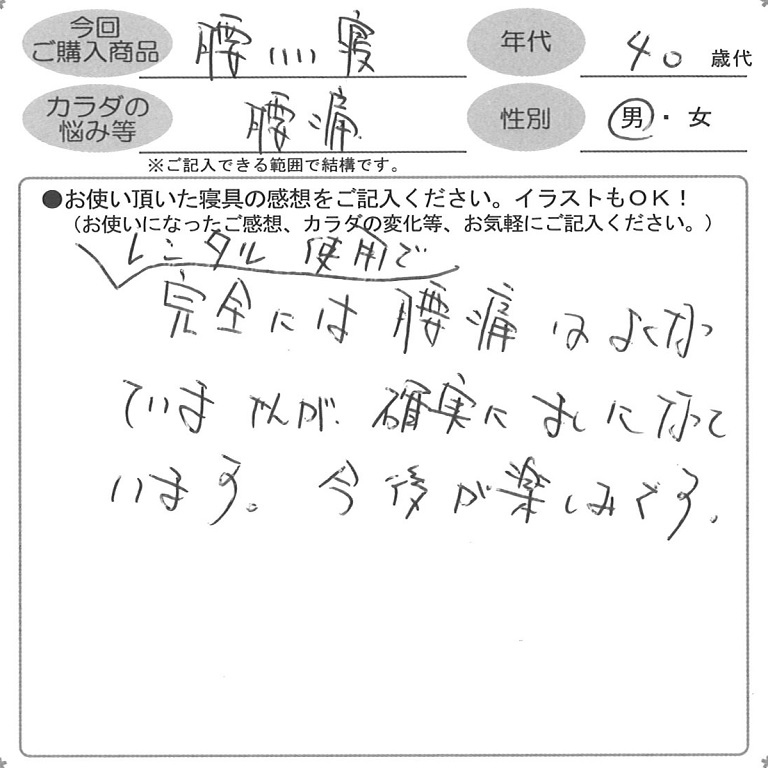 今回
ご購入商品 腰いい寝
年代 40 歳代
カラダの
悩み等 腰痛
性別 男・女
※ご記入できる範囲で結構です。
●お使い頂いた寝具の感想をご記入ください。イラストもOK！
（お使いになったご感想、カラダの変化等、お気軽にご記入ください。）
レンタル使用で
完全には腰痛はよくなっ
ていませんが、確実にましになって
います。今後が楽しみです。